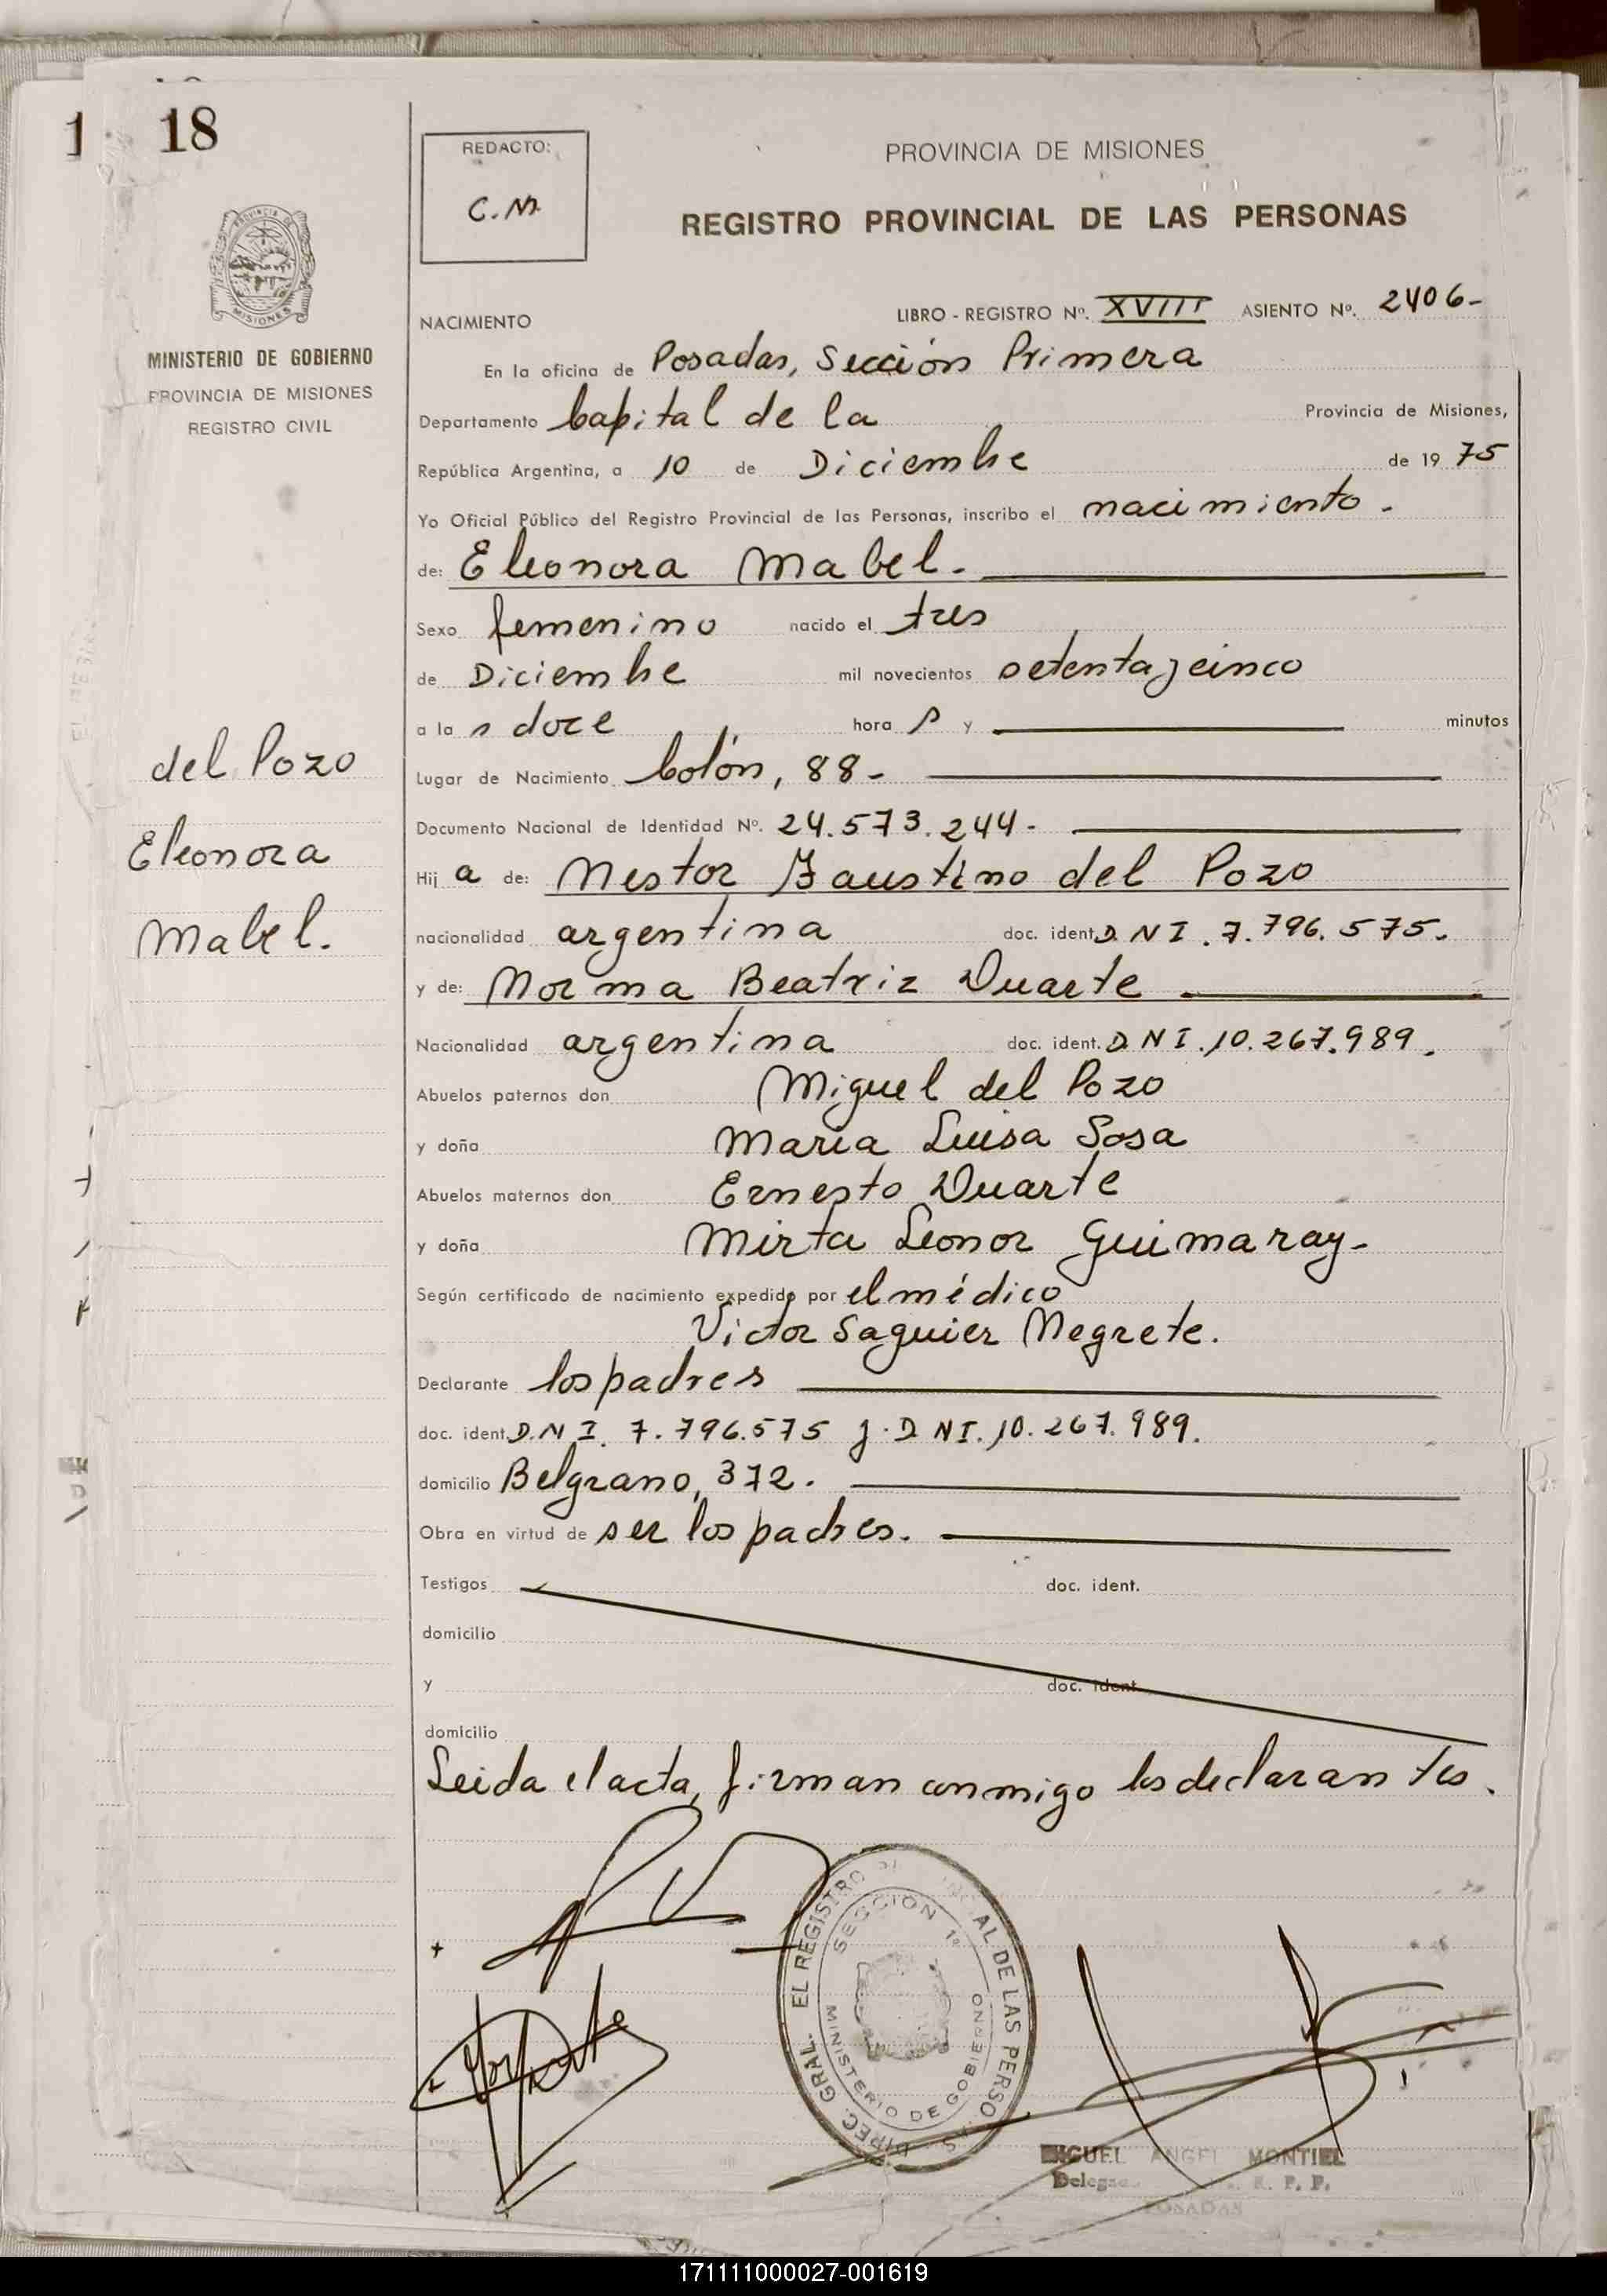 1 18
REDACTO:
C.M.
PROVINCIA DE MISIONES
REGISTRO PROVINCIAL DE LAS PERSONAS
MISIONES
MINISTERIO DE GOBIERNO
PROVINCIA DE MISIONES
REGISTRO CIVIL
NACIMIENTO LIBRO - REGISTRO Nº. XVIII ASIENTO Nº. 2406-
En la oficina de Posadas, Sección Primera
Departamento Capital de la Provincia de Misiones,
República Argentina, a 10 de Diciembre de 1975
Yo Oficial Público del Registro Provincial de las Personas, inscribo el nacimiento.
de: Eleonora Mabel.
Sexo femenino nacido el tres
de Diciembre mil novecientos setenta y cinco
a las doce horas y minutos
Lugar de Nacimiento Colón, 88-
Documento Nacional de Identidad Nº. 24.573.244-
Hija de: Nestor Faustino del Pozo
nacionalidad argentina doc. ident. DNI. 7.796.575.
y de: Norma Beatriz Duarte
Nacionalidad argentina doc. ident. DNI. 10.267.989.
Abuelos paternos don Miguel del Pozo
y doña Maria Luisa Sosa
Abuelos maternos don Ernesto Duarte
y doña Mirta Leonor Guimaray-
Según certificado de nacimiento expedido por el médico
Victor Saguier Negrete.
Declarante los padres
doc. ident. D.N.I. 7.796.575 y DNI. 10.267.989.
domicilio Belgrano, 372.
Obra en virtud de ser los padres.
Testigos doc. ident.
domicilio
y doc. ident.
domicilio
Leida el acta, firman conmigo los declarantes.
del Pozo
Eleonora
Mabel.
DIREC. GRAL. EL REGISTRO AL DE LAS PERSO
SECCION 1ª
MINISTERIO DE GOBIERNO
MIGUEL ANGEL MONTIEL
R. P. P.
POSADAS
171111000027-001619